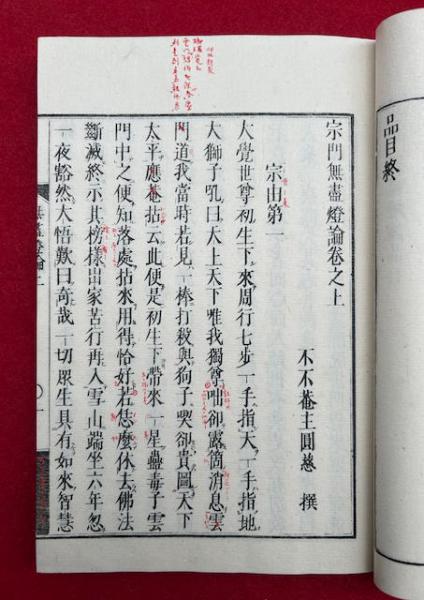 品目終
宗門無盡燈論卷之上
不不菴主圓慈 撰
宗由第一
大覺世尊初生下來周行七步一手指天一手指地
大獅子吼曰天上天下唯我獨尊咄卻露箇消息雲
門道我當時若見一棒打殺與狗子喫卻貴圖天下
太平應菴拈云此便是初生下帶來一星蠱毒子雲
門中之便知落處拈來用得恰好若恁麼休去佛法
斷滅終示其榜樣出家苦行再入雪山端坐六年忽
一夜豁然大悟歎曰奇哉一切眾生具有如來智慧